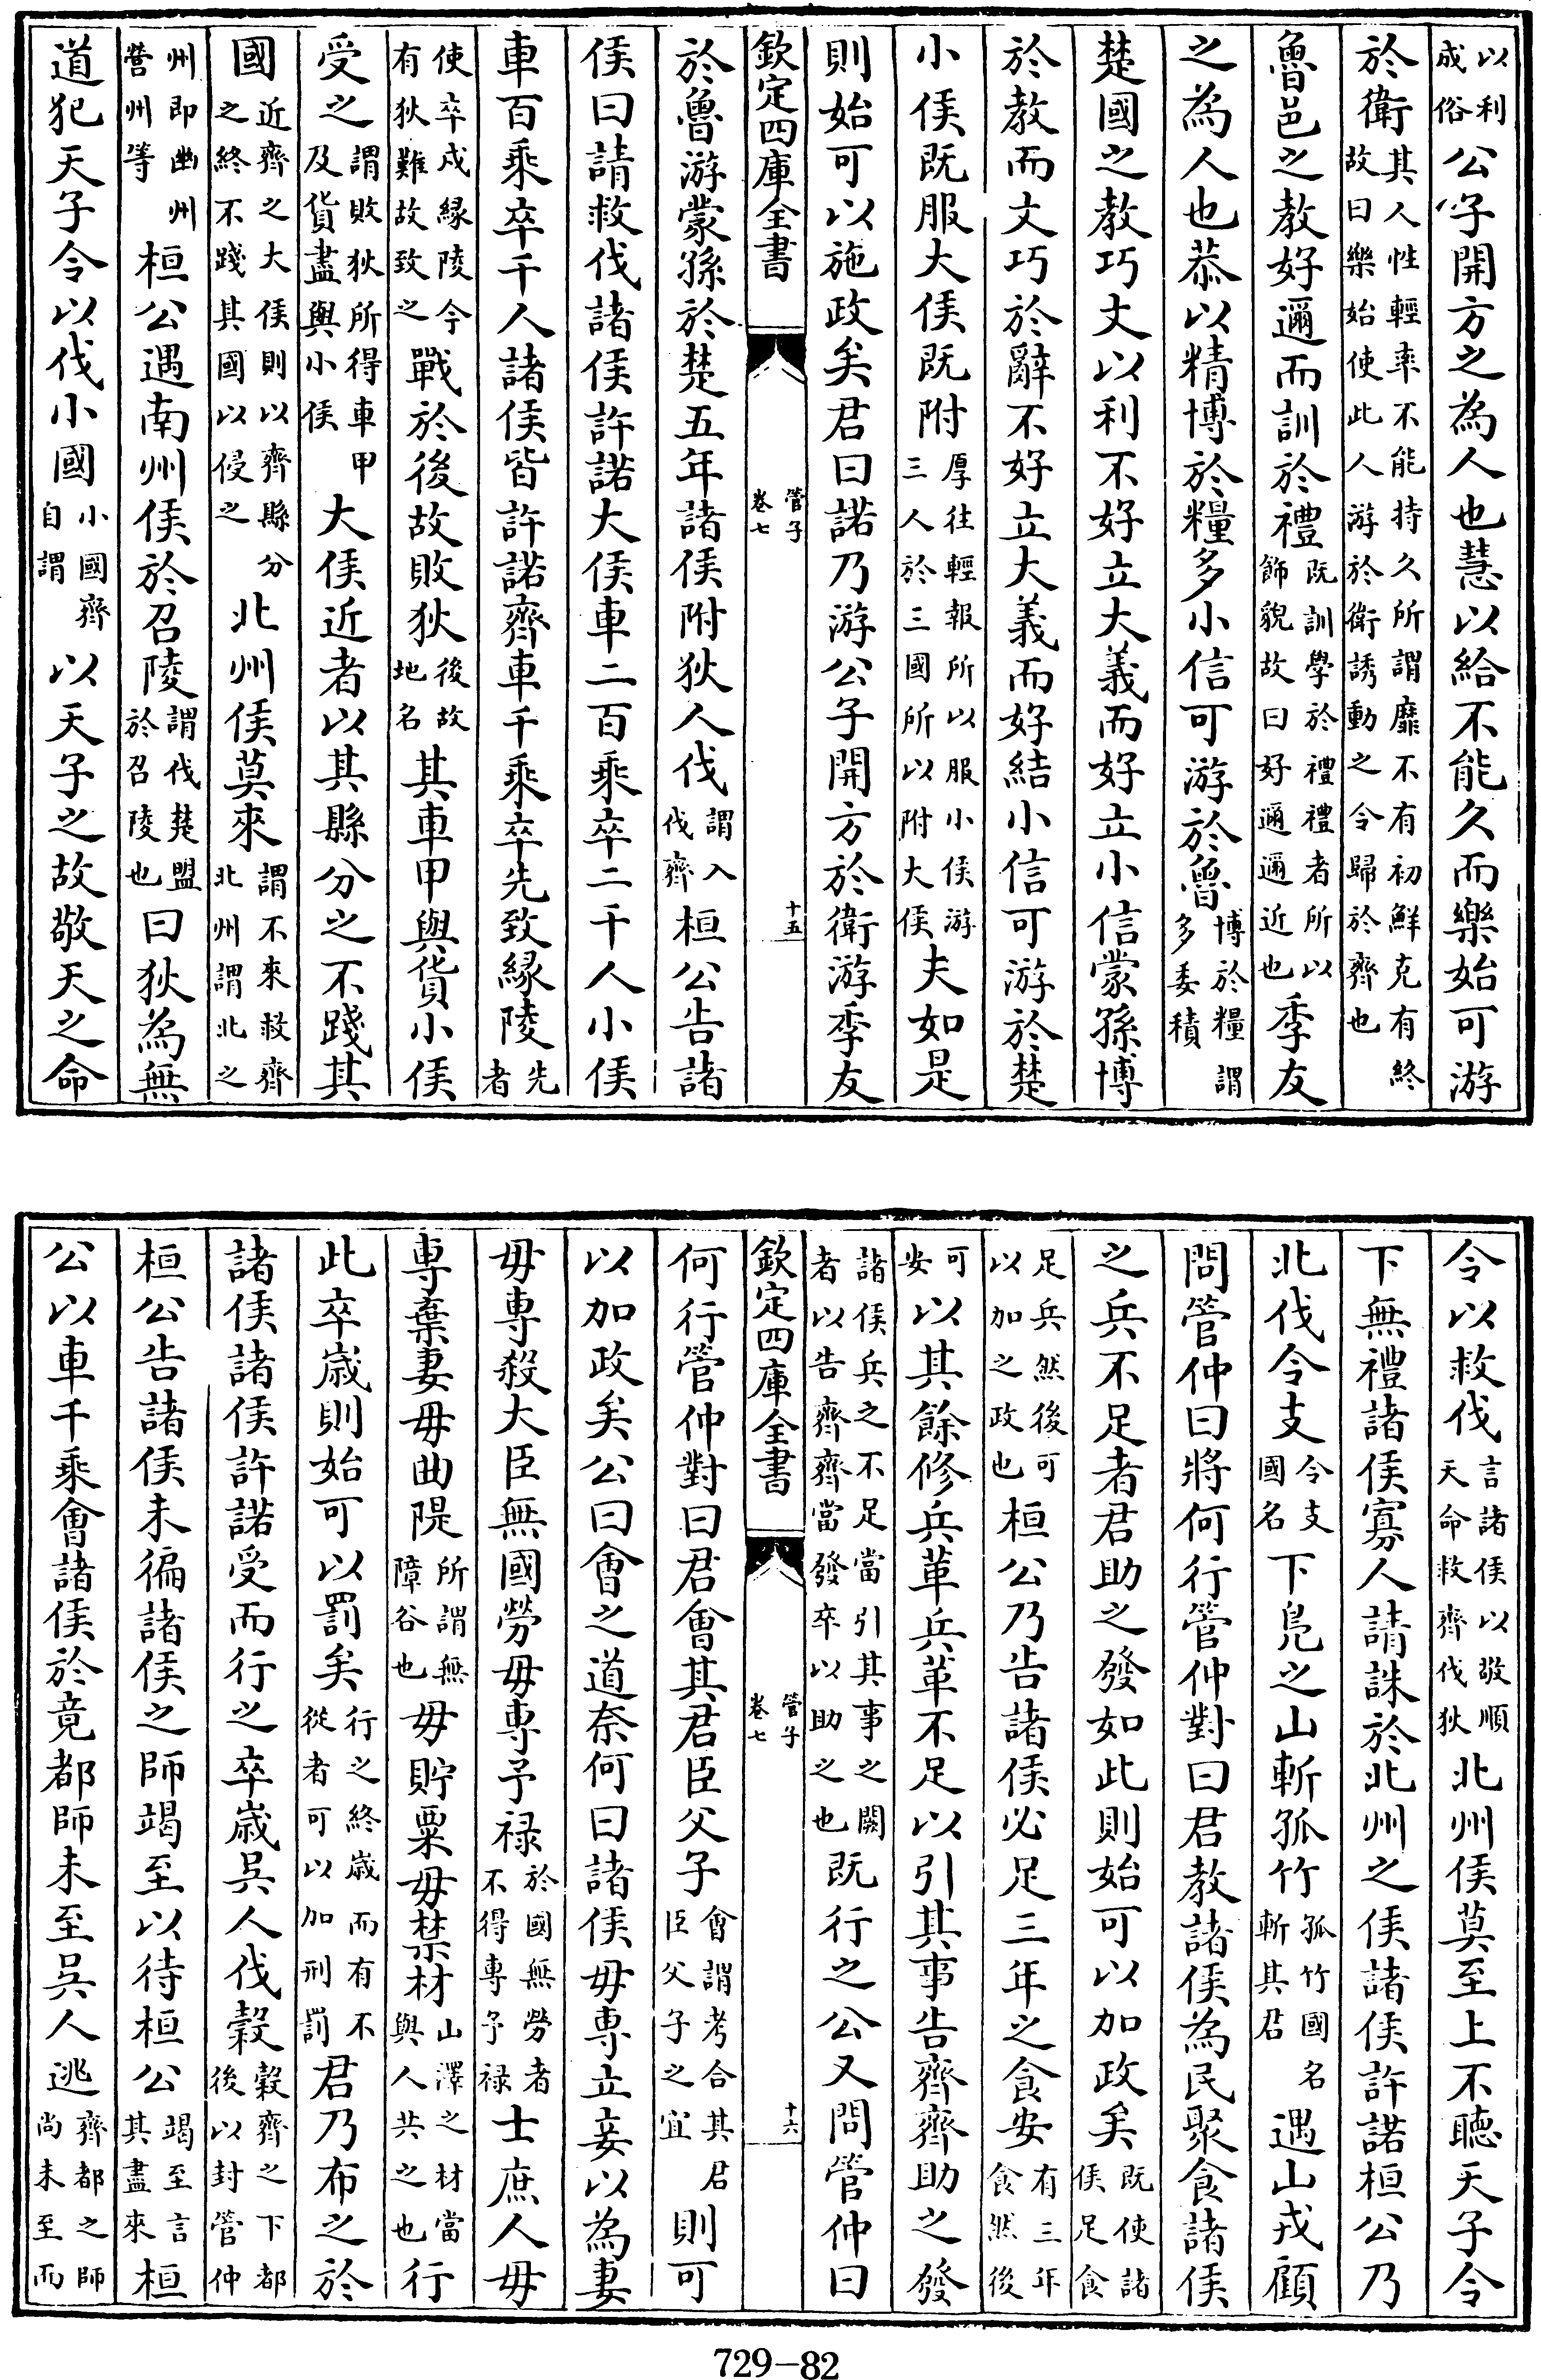 以利成俗公子開方之為人也慧以給不能久而樂始可游
於衛其人性輕率不能持久所謂靡不有初鮮克有終故曰樂始使此人游於衛誘動之令歸於齊也
魯邑之教好邇而訓於禮既訓學於禮禮者所以飾貌故曰好邇邇近也季友
之為人也恭以精博於糧多小信可游於魯博於糧謂多委積
楚國之教巧文以利不好立大義而好立小信蒙孫博
於教而文巧於辭不好立大義而好結小信可游於楚
小侯既服大侯既附厚往輕報所以服小侯游三人於三國所以附大侯夫如是
則始可以施政矣君曰諾乃游公子開方於衛游季友
欽定四庫全書 管子卷七 十五
於魯游蒙孫於楚五年諸侯附狄人伐謂入伐齊桓公告諸
侯曰請救伐諸侯許諾大侯車二百乘卒二千人小侯
車百乘卒千人諸侯皆許諾齊車千乘卒先致緣陵先者
使卒戍緣陵今有狄難故致之戰於後故敗狄後故地名其車甲與貨小侯
受之謂敗狄所得車甲及貨盡與小侯大侯近者以其縣分之不踐其
國近齊之大侯則以齊縣分之終不踐其國以侵之北州侯莫來謂不來救齊北州謂北之
州即幽州營州等桓公遇南州侯於召陵謂伐楚盟於召陵也曰狄為無
道犯天子令以伐小國小國齊自謂以天子之故敬天之命
令以救伐言諸侯以敬順天命救齊伐狄北州侯莫至上不聽天子令
下無禮諸侯寡人請誅於北州之侯諸侯許諾桓公乃
北伐令支令支國名下鳧之山斬孤竹孤竹國名斬其君遇山戎顧
問管仲曰將何行管仲對曰君教諸侯為民聚食諸侯
之兵不足者君助之發如此則始可以加政矣既使諸侯足食
足兵然後可以加之政也桓公乃告諸侯必足三年之食安有三年食然後
可安以其餘修兵革兵革不足以引其事告齊齊助之發
諸侯兵之不足當引其事之闕者以告齊齊當發卒以助之也既行之公又問管仲曰
欽定四庫全書 管子卷七 十六
何行管仲對曰君會其君臣父子會謂考合其君臣父子之宜則可
以加政矣公曰會之道奈何曰諸侯毋專立妾以為妻
毋專殺大臣無國勞毋專予祿於國無勞者不得專予祿士庶人毋
專棄妻毋曲隄所謂無障谷也毋貯粟毋禁材山澤之材當與人共之也行
此卒歲則始可以罰矣行之終歲而有不從者可以加刑罰君乃布之於
諸侯諸侯許諾受而行之卒歲吳人伐穀穀齊之下都後以封管仲
桓公告諸侯未徧諸侯之師竭至以待桓公竭至言其盡來桓
公以車千乘會諸侯於竟都師未至吳人逃齊都之師尚未至而
729-82